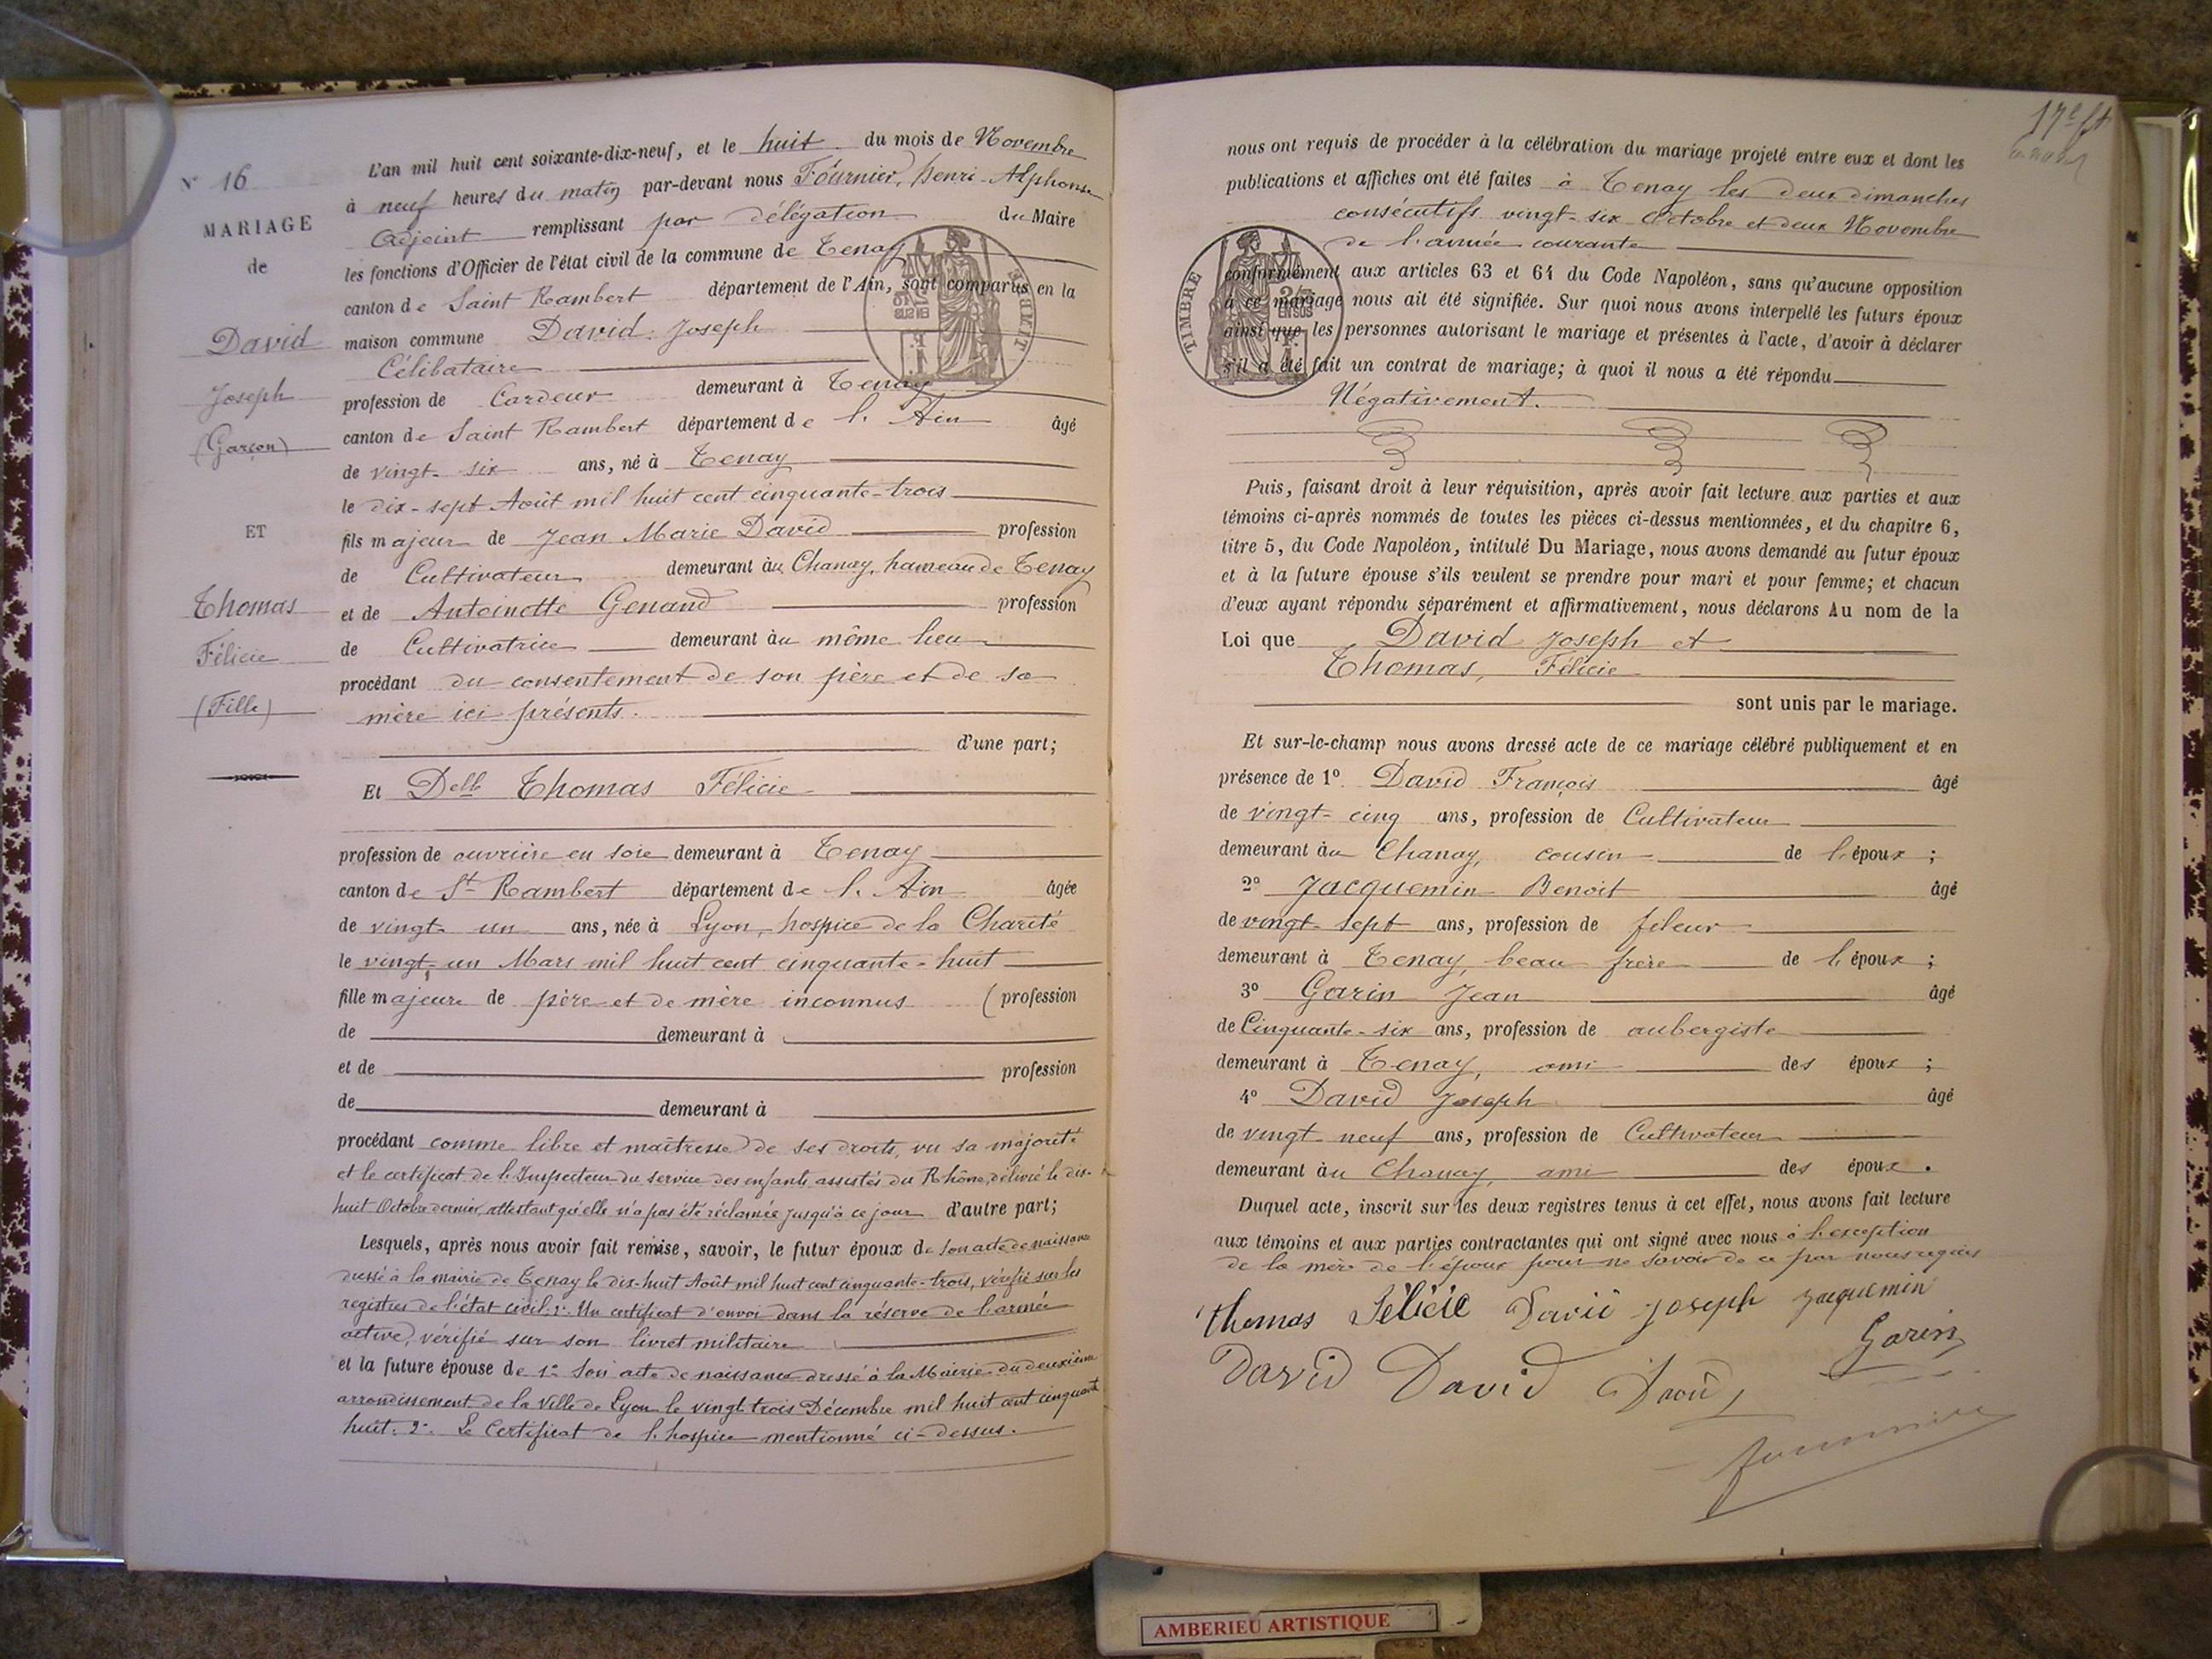 N° 16
MARIAGE
de
David
Joseph
(Garçon)
ET
Thomas
Félicie
(Fille)
L'an mil huit cent soixante-dix-neuf, et le huit du mois de Novembre
à neuf heures du matin par-devant nous Fournier, Henri-Alphonse
Adjoint remplissant par délégation du Maire
les fonctions d'Officier de l'état civil de la commune de Tenay
canton de Saint Rambert département de l'Ain, sont comparus en la
maison commune David Joseph
Célibataire
profession de Cardeur demeurant à Tenay
canton de Saint Rambert département de l'Ain âgé
de vingt-six ans, né à Tenay
le dix-sept Août mil huit cent cinquante-trois
fils majeur de Jean Marie David profession
de Cultivateur demeurant au Chanay, hameau de Tenay
et de Antoinette Genand profession
de Cultivatrice demeurant au même lieu
procédant du consentement de son père et de sa
mère ici présents.
d'une part;
Et Delle Thomas Félicie
profession de ouvrière en soie demeurant à Tenay
canton de St Rambert département de l'Ain âgée
de vingt-un ans, née à Lyon, hospice de la Charité
le vingt-un Mars mil huit cent cinquante-huit
fille majeure de père et de mère inconnus ( profession
de demeurant à
et de profession
de demeurant à
procédant comme libre et maîtresse de ses droits, vu sa majorité
et le certificat de l'Inspecteur du service des enfants assistés du Rhône, délivré le dix-
huit Octobre dernier, attestant qu'elle n'a pas été réclamée jusqu'à ce jour d'autre part;
Lesquels, après nous avoir fait remise, savoir, le futur époux de son acte de naissance
dressé à la mairie de Tenay le dix-huit Août mil huit cent cinquante-trois, vérifié sur les
registres de l'état civil. 2° Un certificat d'envoi dans la réserve de l'armée
active, vérifié sur son livret militaire
et la future épouse de 1° Son acte de naissance dressé à la Mairie du deuxième
arrondissement de la Ville de Lyon le vingt trois Décembre mil huit cent cinquante
huit. 2° Le Certificat de l'hospice mentionné ci-dessus.
17e ft
nous ont requis de procéder à la célébration du mariage projeté entre eux et dont les
publications et affiches ont été faites à Tenay les deux dimanches
consécutifs vingt-six Octobre et deux Novembre
de l'année courante
TIMBRE
conformément aux articles 63 et 64 du Code Napoléon, sans qu'aucune opposition
à ce mariage nous ait été signifiée. Sur quoi nous avons interpellé les futurs époux
ainsi que les personnes autorisant le mariage et présentes à l'acte, d'avoir à déclarer
s'il a été fait un contrat de mariage; à quoi il nous a été répondu
Négativement.
Puis, faisant droit à leur réquisition, après avoir fait lecture aux parties et aux
témoins ci-après nommés de toutes les pièces ci-dessus mentionnées, et du chapitre 6,
titre 5, du Code Napoléon, intitulé Du Mariage, nous avons demandé au futur époux
et à la future épouse s'ils veulent se prendre pour mari et pour femme; et chacun
d'eux ayant répondu séparément et affirmativement, nous déclarons Au nom de la
Loi que David Joseph et
Thomas, Félicie
sont unis par le mariage.
Et sur-le-champ nous avons dressé acte de ce mariage célébré publiquement et en
présence de 1° David François âgé
de vingt-cinq ans, profession de Cultivateur
demeurant au Chanay, cousin de l'époux ;
2° Jacquemin Benoit âgé
de vingt-sept ans, profession de fileur
demeurant à Tenay, beau frère de l'époux ;
3° Garin Jean âgé
de Cinquante-six ans, profession de aubergiste
demeurant à Tenay, ami des époux ;
4° David Joseph âgé
de vingt neuf ans, profession de Cultivateur
demeurant au Chanay, ami des époux.
Duquel acte, inscrit sur les deux registres tenus à cet effet, nous avons fait lecture
aux témoins et aux parties contractantes qui ont signé avec nous à l'exception
de la mère de l'époux pour ne savoir de ce par nous requis
Thomas Félicie David Joseph Jacquemin
Garin
David David
Fournier
AMBERIEU ARTISTIQUE